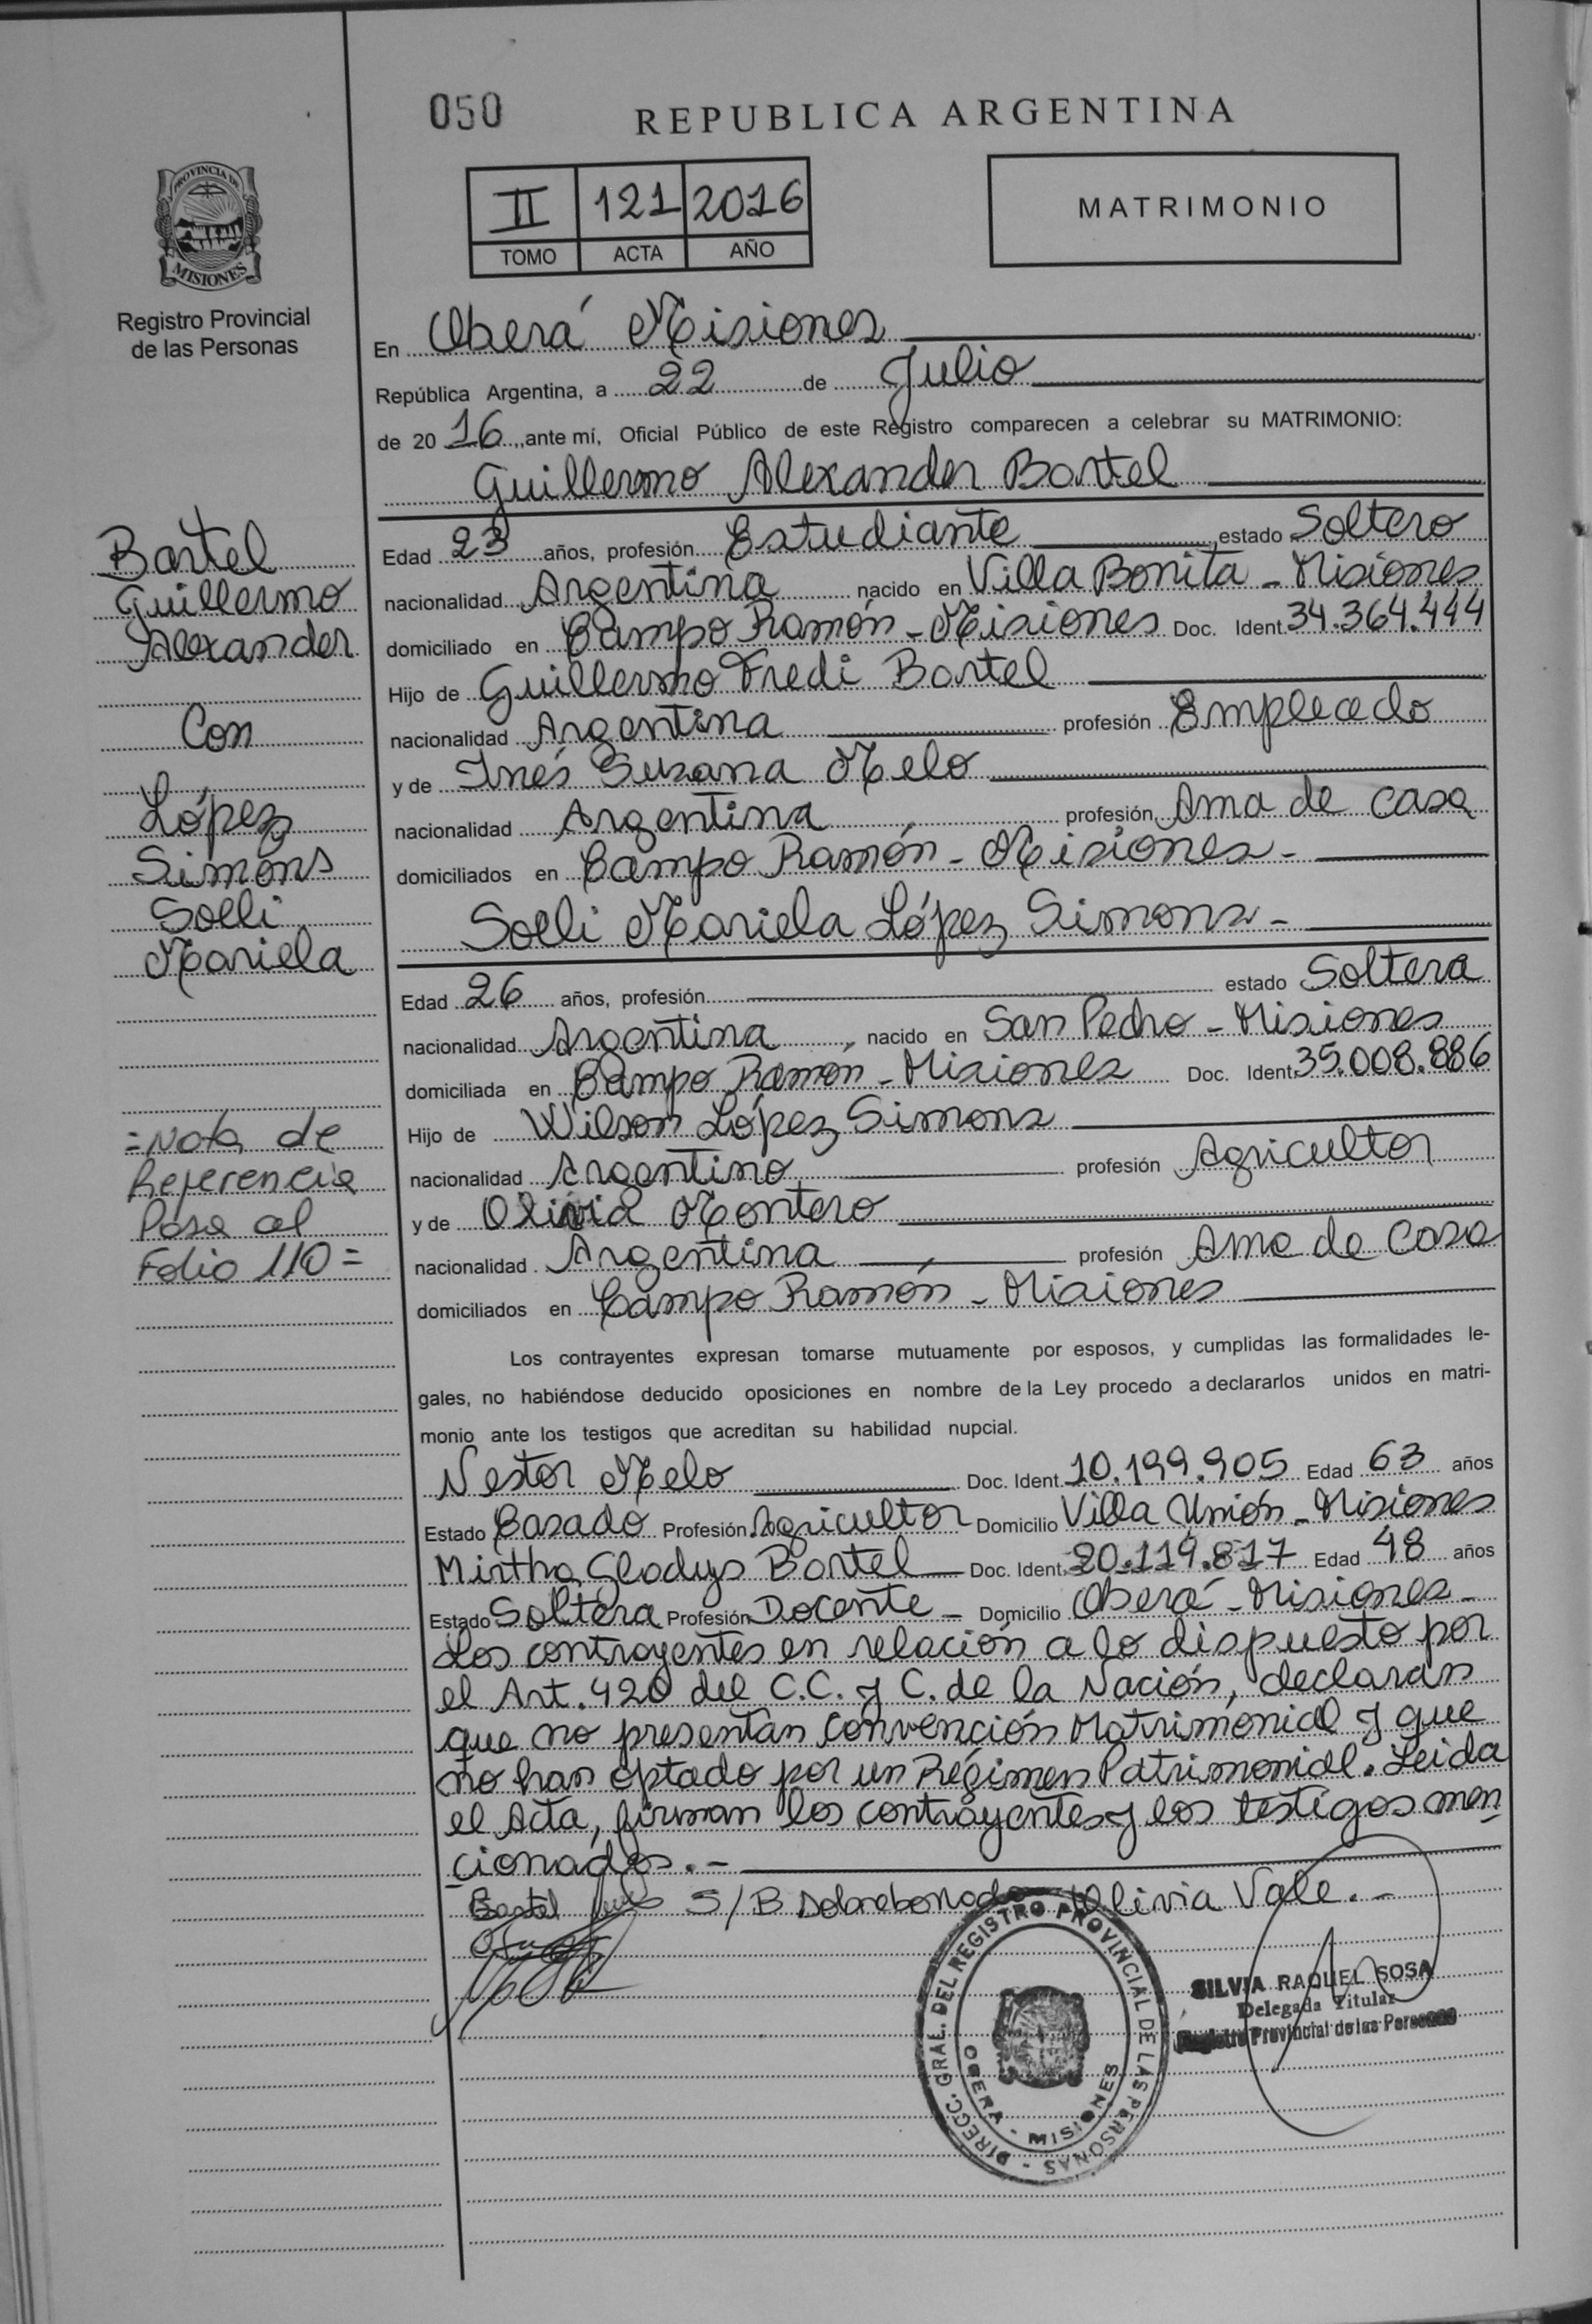 050
REPUBLICA ARGENTINA
PROVINCIA DE
MISIONES
Registro Provincial
de las Personas
II 121 2016
TOMO ACTA AÑO
MATRIMONIO
En Oberá Misiones
República Argentina, a 22 de Julio
de 20 16 ,ante mí, Oficial Público de este Registro comparecen a celebrar su MATRIMONIO:
Guillermo Alexander Bartel
Bartel
Guillermo
Alexander
Con
López
Simóns
Solli
Mariela
=Nota de
Referencia
Pasa al
Folio 110=
Edad 23 años, profesión Estudiante estado Soltero
nacionalidad Argentina nacido en Villa Bonita - Misiones
domiciliado en Campo Ramón - Misiones Doc. Ident. 34.364.444
Hijo de Guillermo Fredi Bartel
nacionalidad Argentina profesión Empleado
y de Inés Susana Melo
nacionalidad Argentina profesión Ama de casa
domiciliados en Campo Ramón - Misiones -
Solli Mariela López Simons -
Edad 26 años, profesión estado Soltera
nacionalidad Argentina, nacido en San Pedro - Misiones
domiciliada en Campo Ramón - Misiones Doc. Ident. 35.008.886
Hijo de Wilson López Simons
nacionalidad Argentino profesión Agricultor
y de Olivia Montero
nacionalidad Argentina profesión Ama de Casa
domiciliados en Campo Ramón - Misiones
Los contrayentes expresan tomarse mutuamente por esposos, y cumplidas las formalidades le-
gales, no habiéndose deducido oposiciones en nombre de la Ley procedo a declararlos unidos en matri-
monio ante los testigos que acreditan su habilidad nupcial.
Nestor Melo Doc. Ident. 10.199.905 Edad 63 años
Estado Casado Profesión Agricultor Domicilio Villa Unión - Misiones
Mirtha Gladys Bartel Doc. Ident. 20.119.817 Edad 48 años
Estado Soltera Profesión Docente - Domicilio Oberá - Misiones -
Los contrayentes en relación a lo dispuesto por
el Art. 420 del C.C. y C. de la Nación, declaran
que no presentan Convención Matrimonial y que
no han optado por un Régimen Patrimonial. Leida
el Acta, firman los contrayentes y los testigos men
cionados.-
Bartel S/B Sobreborrado Olivia Vale.-
DIRECC. GRAL. DEL REGISTRO PROVINCIAL DE LAS PERSONAS -
OBERA - MISIONES
SILVIA RAQUEL SOSA
Delegada Titular
Registro Provincial de las Personas